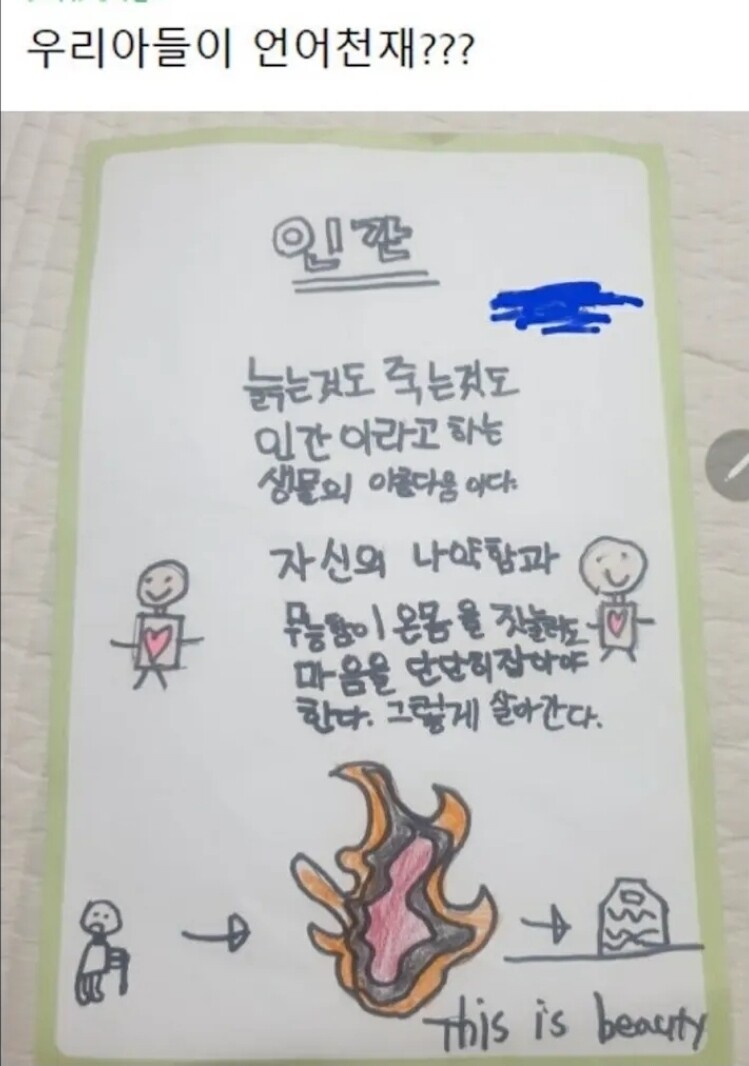 우리아들이 언어천재???
인간
늙는것도 죽는것도
인간 이라고 하는
생물의 아름다움 이다.
자신의 나약함과
무능함이 온몸을 짓눌러도
마음을 단단히잡아야
한다. 그렇게 살아간다.
This is beauty